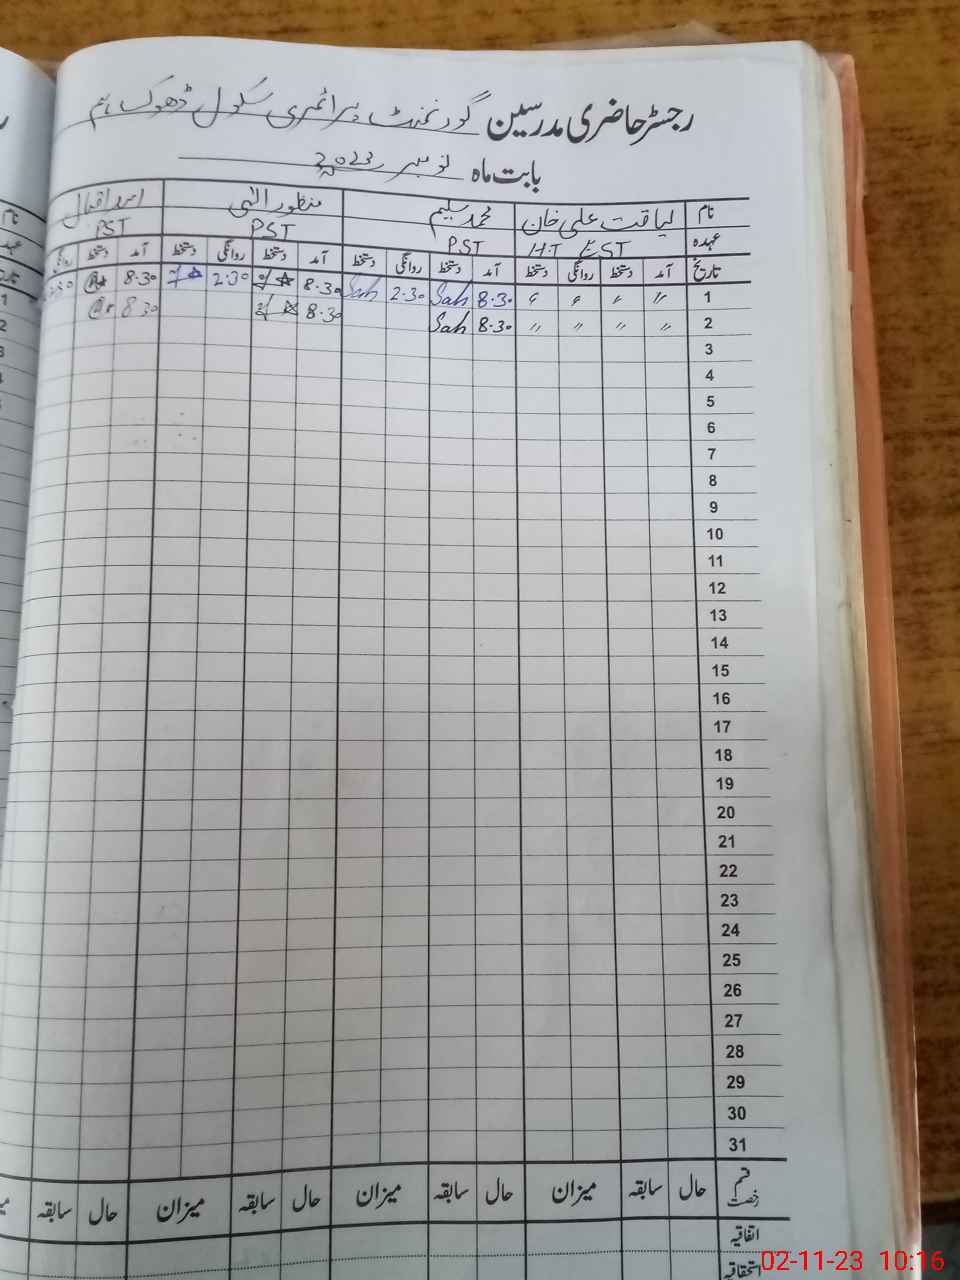 رجسٹر حاضری مدرسین گورنمنٹ پرائمری سکول ڈھوک
بابت ماہ نومبر 2023
نام لیاقت علی خان محمد سلیم منظور الٰہی اسد اقبال
عہدہ H.T EST PST PST PST
تاریخ آمد دستخط روانگی دستخط آمد دستخط روانگی دستخط آمد دستخط روانگی دستخط آمد دستخط روانگی
1 〃 〃 〃 〃 8.30 Sah 2.30 Sah 8.30 2.30 8.30
2 〃 〃 〃 〃 8.30 Sah 8.30 8.30
3
4
5
6
7
8
9
10
11
12
13
14
15
16
17
18
19
20
21
22
23
24
25
26
27
28
29
30
31
قسم رخصت حال سابقہ میزان حال سابقہ میزان حال سابقہ میزان حال سابقہ
اتفاقیہ
استحقاقیہ
02-11-23 10:16